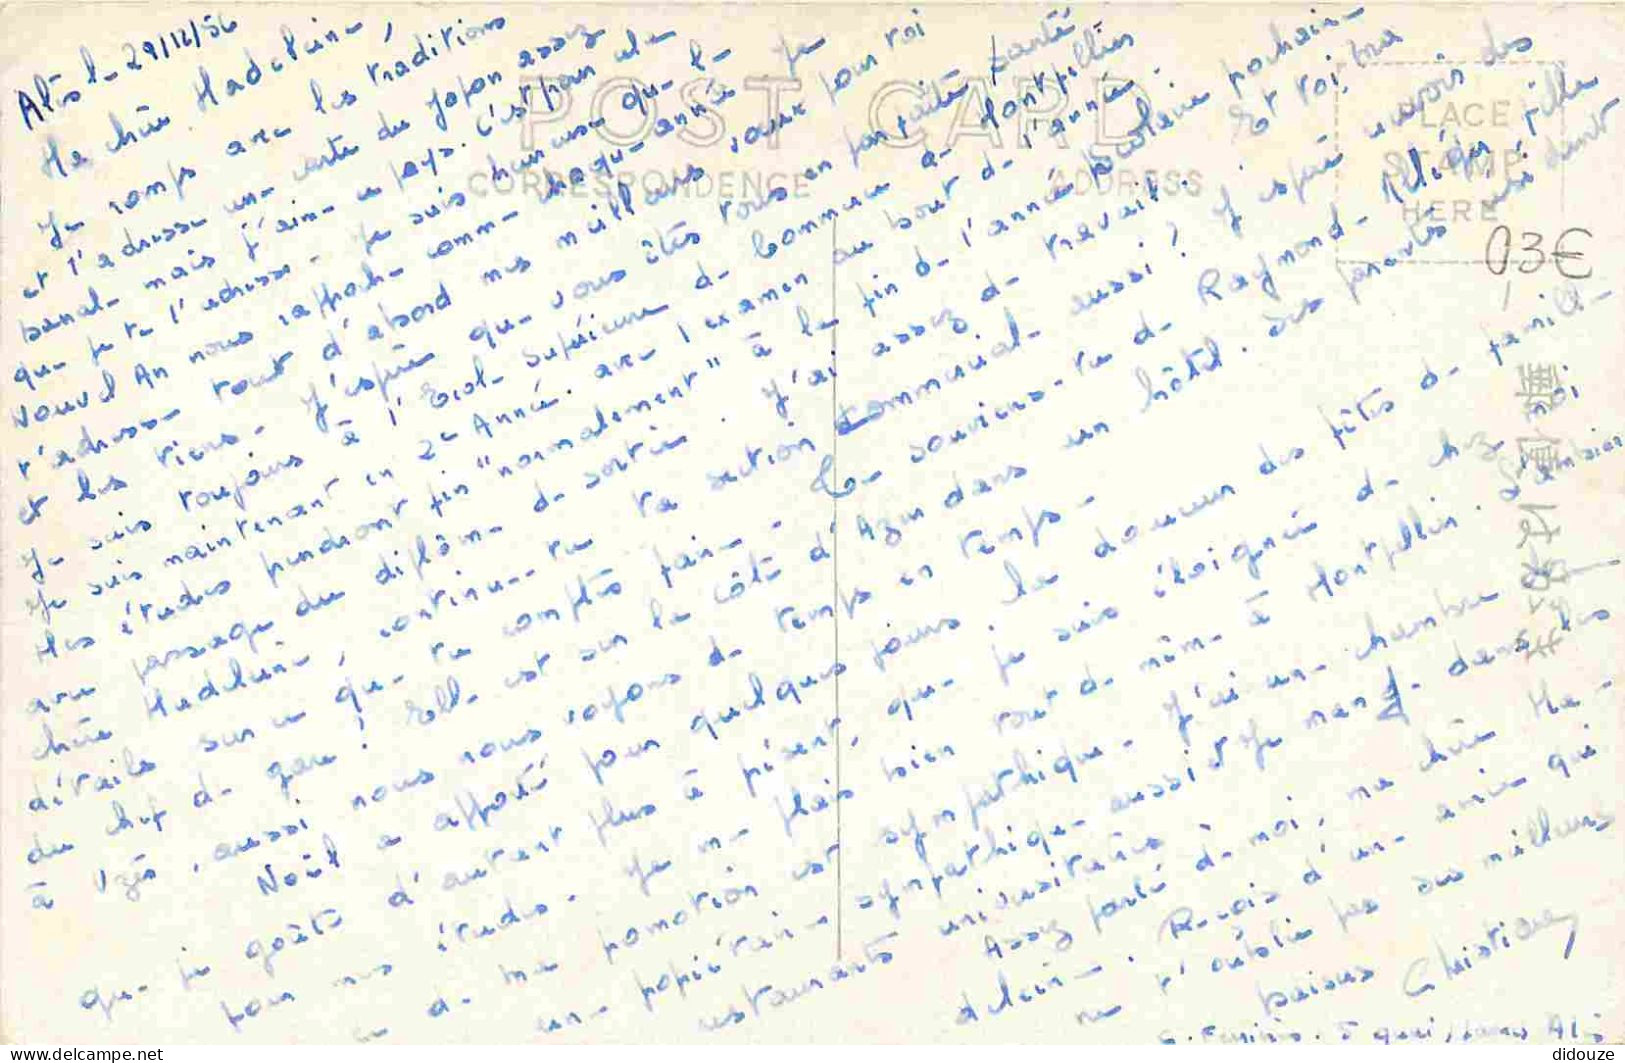 Alès le 29/12/56
Ma chère Madeleine,
Je romps avec les traditions
et t'adresse une carte du Japon assez
banale mais j'aime ce pays. C'est pour cela
que je te l'adresse. Je suis heureuse que le
Nouvel An nous rapproche comme chaque année. Je
t'adresse tout d'abord mes meilleurs voeux pour toi
et les tiens. J'espère que vous êtes tous en parfaite santé
Je suis toujours à l'Ecole Supérieure de Commerce de Montpellier
Je suis maintenant en 2e Année. avec 1 examen au bout de l'année.
Mes études prendront fin "normalement" à la fin de l'année scolaire prochaine
avec passage du diplôme de sortie. J'ai assez de travail. Et toi, ma
chère Madeleine, continues-tu ta section commerciale aussi? J'espère avoir des
détails sur ce que tu comptes faire. Te souviens-tu de Raymonde, fille
du chef de gare? Elle est sur la Côte d'Azur dans un hôtel. Ses parents
à Uzès, aussi nous nous voyons de temps en temps.
Noël a apporté pour quelques jours la douceur des fêtes de famille
que je goûte d'autant plus à présent, que je suis éloignée de chez moi
pour mes études. Je me plais bien tout de même à Montpellier. L'ambiance
de ma promotion est sympathique. J'ai une chambre
sympathique aussi et je mange dans les
restaurants universitaires
Assez parlé de moi, ma chère Ma-
deleine. Reçois d'une amie qui
ne t'oublie pas ses meilleurs
baisers Christiane
à quai, Alès
POST CARD
CORRESPONDENCE
ADDRESS
PLACE
STAMP
HERE
03€
didouze